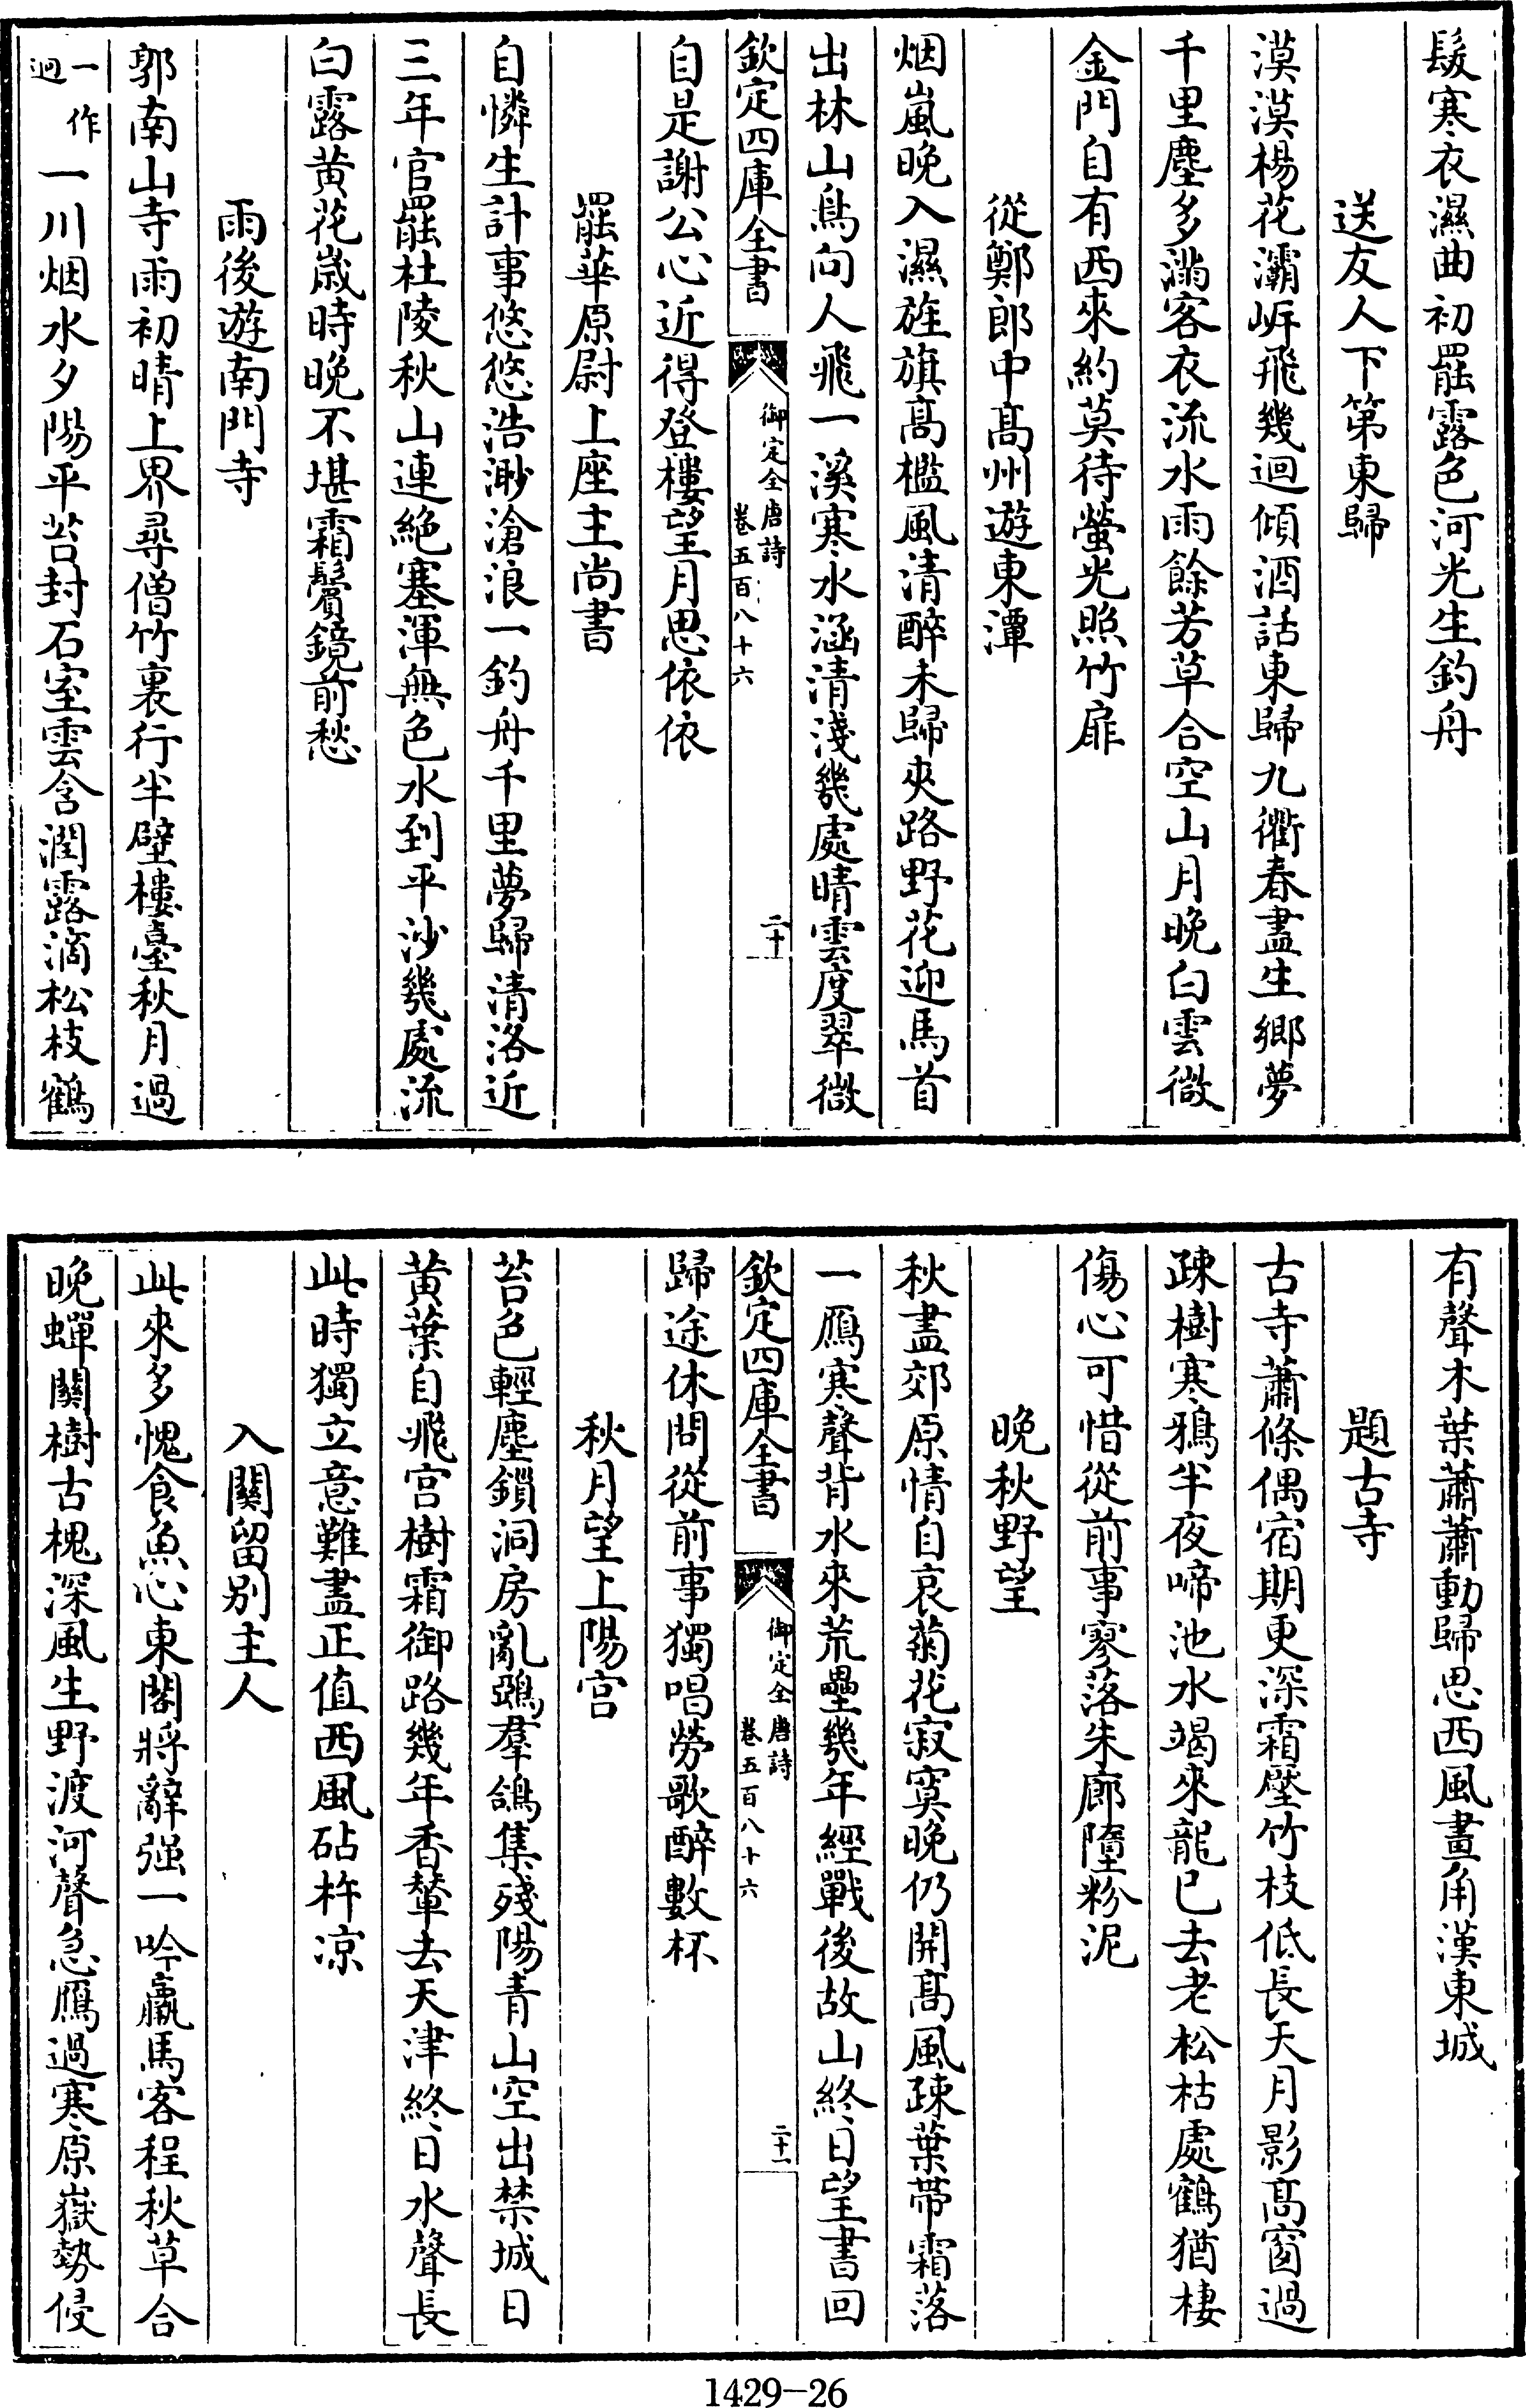 髮寒衣濕曲初罷露色河光生釣舟
送友人下第東歸
漠漠楊花灞岸飛幾迴傾酒話東歸九衢春盡生鄉夢
千里塵多滿客衣流水雨餘芳草合空山月晚白雲微
金門自有西來約莫待螢光照竹扉
從鄭郎中髙州遊東潭
烟嵐晚入濕旌旗髙檻風清醉未歸夾路野花迎馬首
出林山鳥向人飛一溪寒水涵清淺幾處晴雲度翠微
欽定四庫全書
御定全唐詩
卷五百八十六
二十
自是謝公心近得登樓望月思依依
罷華原尉上座主尚書
自憐生計事悠悠浩渺滄浪一釣舟千里夢歸清洛近
三年官罷杜陵秋山連絶塞渾無色水到平沙幾處流
白露黄花歲時晚不堪霜鬢鏡前愁
雨後遊南門寺
郭南山寺雨初晴上界尋僧竹裏行半壁樓臺秋月過
一作迥一川烟水夕陽平苔封石室雲含潤露滴松枝鶴
有聲木葉蕭蕭動歸思西風畫角漢東城
題古寺
古寺蕭條偶宿期更深霜壓竹枝低長天月影髙窗過
疎樹寒鴉半夜啼池水竭來龍已去老松枯處鶴猶棲
傷心可惜從前事寥落朱廊墮粉泥
晚秋野望
秋盡郊原情自哀菊花寂寞晚仍開髙風疎葉帶霜落
一鴈寒聲背水來荒壘幾年經戰後故山終日望書回
欽定四庫全書
御定全唐詩
卷五百八十六
二十一
歸途休問從前事獨唱勞歌醉數杯
秋月望上陽宫
苔色輕塵鎖洞房亂鵶羣鴿集殘陽青山空出禁城日
黄葉自飛宫樹霜御路幾年香輦去天津終日水聲長
此時獨立意難盡正值西風砧杵凉
入關留别主人
此來多愧食魚心東閣將辭强一吟羸馬客程秋草合
晚蟬關樹古槐深風生野渡河聲急鴈過寒原嶽勢侵
1429-26